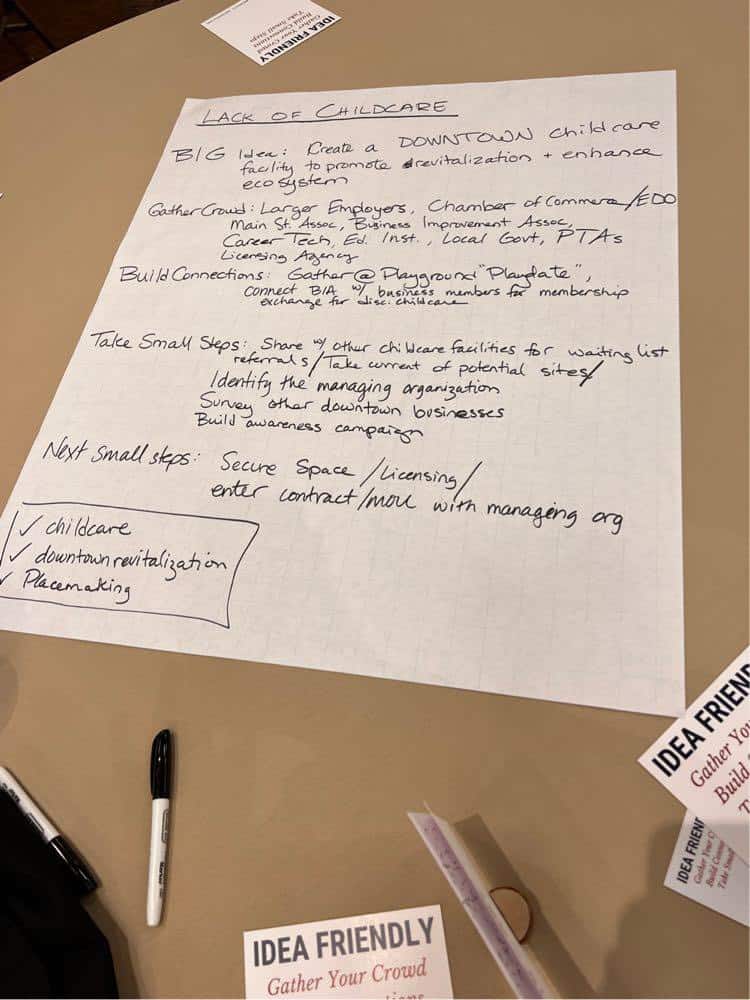 IDEA FRIENDLY
Gather Your Crowd
Build Connections
Take Small Steps
LACK OF CHILDCARE
BIG Idea: Create a DOWNTOWN childcare
facility to promote revitalization + enhance
ecosystem
Gather Crowd: Larger Employers, Chamber of Commerce/EDO
Main St. Assoc, Business Improvement Assoc,
Career Tech, Ed. Inst., Local Govt, PTAs
Licensing Agency
Build Connections: Gather @ Playground "Playdate",
connect BIA w/ business members for membership
exchange for disc. childcare
Take Small Steps: Share w/ other childcare facilities for waiting list
referrals/Take current of potential sites/
Identify the managing organization
Survey other downtown businesses
Build awareness campaign
Next small steps: Secure Space/Licensing/
enter contract/mou with managing org
✓ childcare
✓ downtown revitalization
✓ Placemaking
IDEA FRIEN
Gather You
Build
T
IDEA FRIEN
Gather Your C
Build Connec
Take Small
IDEA FRIENDLY
Gather Your Crowd